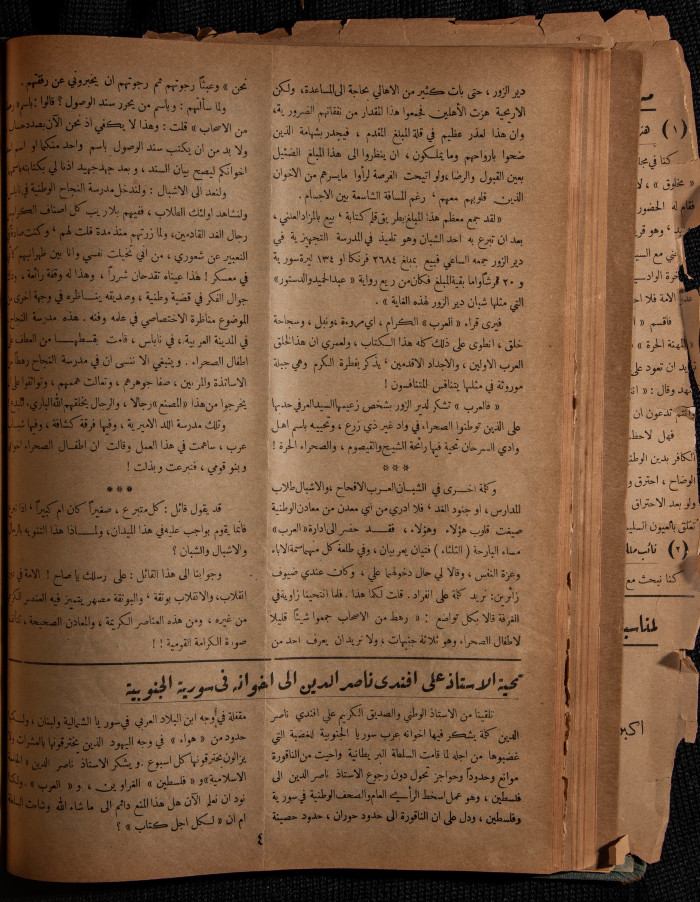 دير الزور ، حتى بات كثير من الاهالي بحاجة الى المساعدة، ولكن
الاريحية هزت الأهلين فجمعوا هذا المقدار من نفقاتهم الضرورية،
وان هذا لعذر عظيم في قلة المبلغ المقدم ، فيجدر بشهامة الذين
ضحوا بارواحهم وما يملكون ، ان ينظروا الى هذا المبلغ الضئيل
بعين القبول والرضاء، ولو اتيحت الفرصة لرأوا ما يسرهم من الاخوان
الذين قلوبهم معهم ، رغم المسافة الشاسعة بين الاجسام .
«لقد جمع معظم هذا المبلغ بطريق قلم كتابة ، بيع بالمزاد العلني ،
بعد ان تبرع به احد الشبان وهو تلميذ في المدرسة التجهيزية في
دير الزور جمعه الساعي فبيع بمبلغ ٢٦٨٤ فرنكا او ١٣٤ ليرة سورية
و ٢٠ قرشاً واما بقية المبلغ فكان من ريع رواية « عبد الحميد والدستور»
التي مثلها شبان دير الزور لهذه الغاية » .
فيرى قراء « العرب » الكرام ، اي مروءة ، ونبل ، وسجاحة
خلق ، انطوى على ذلك كله هذا الكتاب ، ولعمري ان هذا الخلق
العرب الاولين ، والاجداد الاقدمين ، يذكر بفطرة الكرم وهي جبلة
موروثة في مثلها يتنافس المتنافسون !
« فالعرب » تشكر لدير الزور بشخص زعيمها السيد العرفي حدبها
على الذين توطنوا الصحراء في واد غير ذي زرع ، وتحييه باسم اهل
وادي السرحان تحية فيها رائحة الشيح والقيصوم ، والصحراء الحرة !
***
وكلمة اخرى في الشبان العرب الاقحاح ، والاشبال طلاب
المدارس ، او جنود الغد ، فلا ادري من اي معدن من معادن الوطنية
صيغت قلوب هؤلاء وهؤلاء ، فقد حضر الى ادارة « العرب »
مساء البارحة ( الثلثاء ) فتيان يعربيان ، وفي طلعة كل منهما سمة الاباء
وعزة النفس ، وقالا لي حال دخولهما علي ، وكان عندي ضيوف
زائرين: نريد كلمة على انفراد . قلت لكما هذا . فلما انتحينا زاوية في
الغرفة قالا بكل تواضع : « رهط من الاصحاب جمعوا شيئاً قليلا
لاطفال الصحراء وهو ثلاثة جنيهات ، ولا نريد ان يعرف احد من
نحن » وعبثاً رجوتهم ثم رجوتهم ان يخبروني عن رفقتهم .
ولما سألتهم : وباسم من يحرر سند الوصول ؟ قالوا : باسم
من الاصحاب » قلت : وهذا لا يكفي اذ نحن الآن بصدد
ولا بد من ان يكتب سند الوصول باسم واحد منكما او اسم
اخوانكم ليصح بيان السند ، وبعد جهد جهيد اذنا لي بكتابته
ولنعد الى الاشبال : ولندخل مدرسة النجاح الوطنية في
ولنشاهد اولئك الطلاب ، ففيهم بلا ريب كل اصناف
رجال الغد القادمين، ولما زرتهم منذ مدة قلت لهم ، وكنت
التعبير عن شعوري ، من اني تخيلت نفسي وانا بين ظهرانيهم
في معسكر ! هذا عيناه تقدحان شرراً ، وهذا له وقفة رائعة ،
جوال الفكر في قضية وطنية ، وصديقه يناظره في وجهة اخرى
الموضوع مناظرة الاختصاصي في علمه وفنه . هذه مدرسة النجاح
في المدينة العربية ، في نابلس ، قامت بقسطها من العطف
اطفال الصحراء . وينبغي الا ننسى ان في مدرسة النجاح
الاساتذة والمربين ، صفا جوهرهم ، وتعالت هممهم ، وتواثقوا
يخرجوا من هذا « المصنع » رجالا ، والرجال يخلقهم الله الباري،
وتلك مدرسة اللد الاميرية ، وفيها فرقة كشافة ، وفيها
عرب ، ساهمت في هذا العمل وقالت ان اطفال الصحراء
وبنو قومي ، فتبرعت وبذلت !
***
قد يقول قائل : كل متبرع ، صغيراً كان ام كبيراً ،
فانما يقوم بواجب عليه في هذا الميدان، ولماذا هذا التنويه
والاشبال والشبان ؟
وجوابنا الى هذا القائل : على رسلك يا صاح ! الامة في
انقلاب، والانقلاب بوتقة ، والبوتقة مصهر يتميز فيه العنصر
من غيره ، ومن هذه العناصر الكريمة ، والمعادن الصحيحة ،
صورة الكرامة القومية ! !
تحية الاستاذ على افندى ناصر الدين الى اخوانه فى سورية الجنوبية
تلقينا من الاستاذ الوطني والصديق الكريم علي افندي ناصر
الدين كلمة يشكر فيها اخوانه عرب سوريا الجنوبية للغضبة التي
غضبوها من اجله لما قامت السلطة البريطانية واحيت من الناقورة
موانع وحدوداً وحواجز تحول دون رجوع الاستاذ ناصر الدين الى
فلسطين ، وهو عمل اسخط الرأي العام والصحف الوطنية في سورية
وفلسطين ، ودل على ان الناقورة الى حدود حوران ، حدود حصينة
مقفلة في وجه ابن البلاد العربي في سوريا الشمالية ولبنان ،
حدود من « هواء » في وجه اليهود الذين يخترقونها بالعشرات
يزالون يخترقونها كل اسبوع . ويشكر الاستاذ ناصر الدين
الاسلامية» و « فلسطين » الغراوين ، و « العرب » .
نود ان نعلم الآن هل هذا المنع دائم الى ما شاء الله وشاءت
ام ان « لكل اجل كتاب » ؟
٤
(١)
كنا في
« مخلوق » ،
(٢)
كنا نبحث مع
لمناسبـ
اكبر